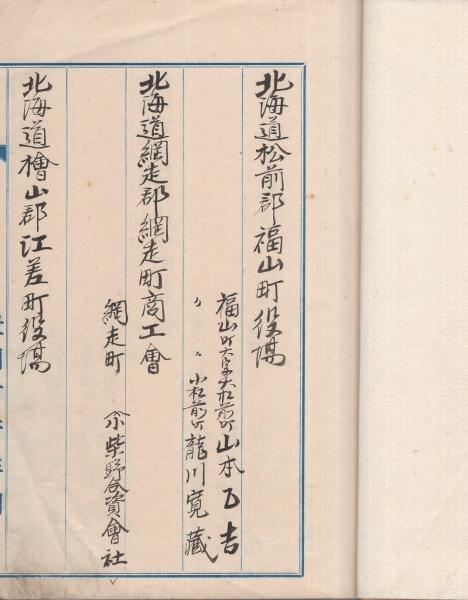 北海道松前郡福山町役場
福山町大字大松前町山本乙吉
〃 〃 小松前町龍川寛藏
北海道網走郡網走町商工會
網走町 柴野合資會社
北海道檜山郡江差町役場